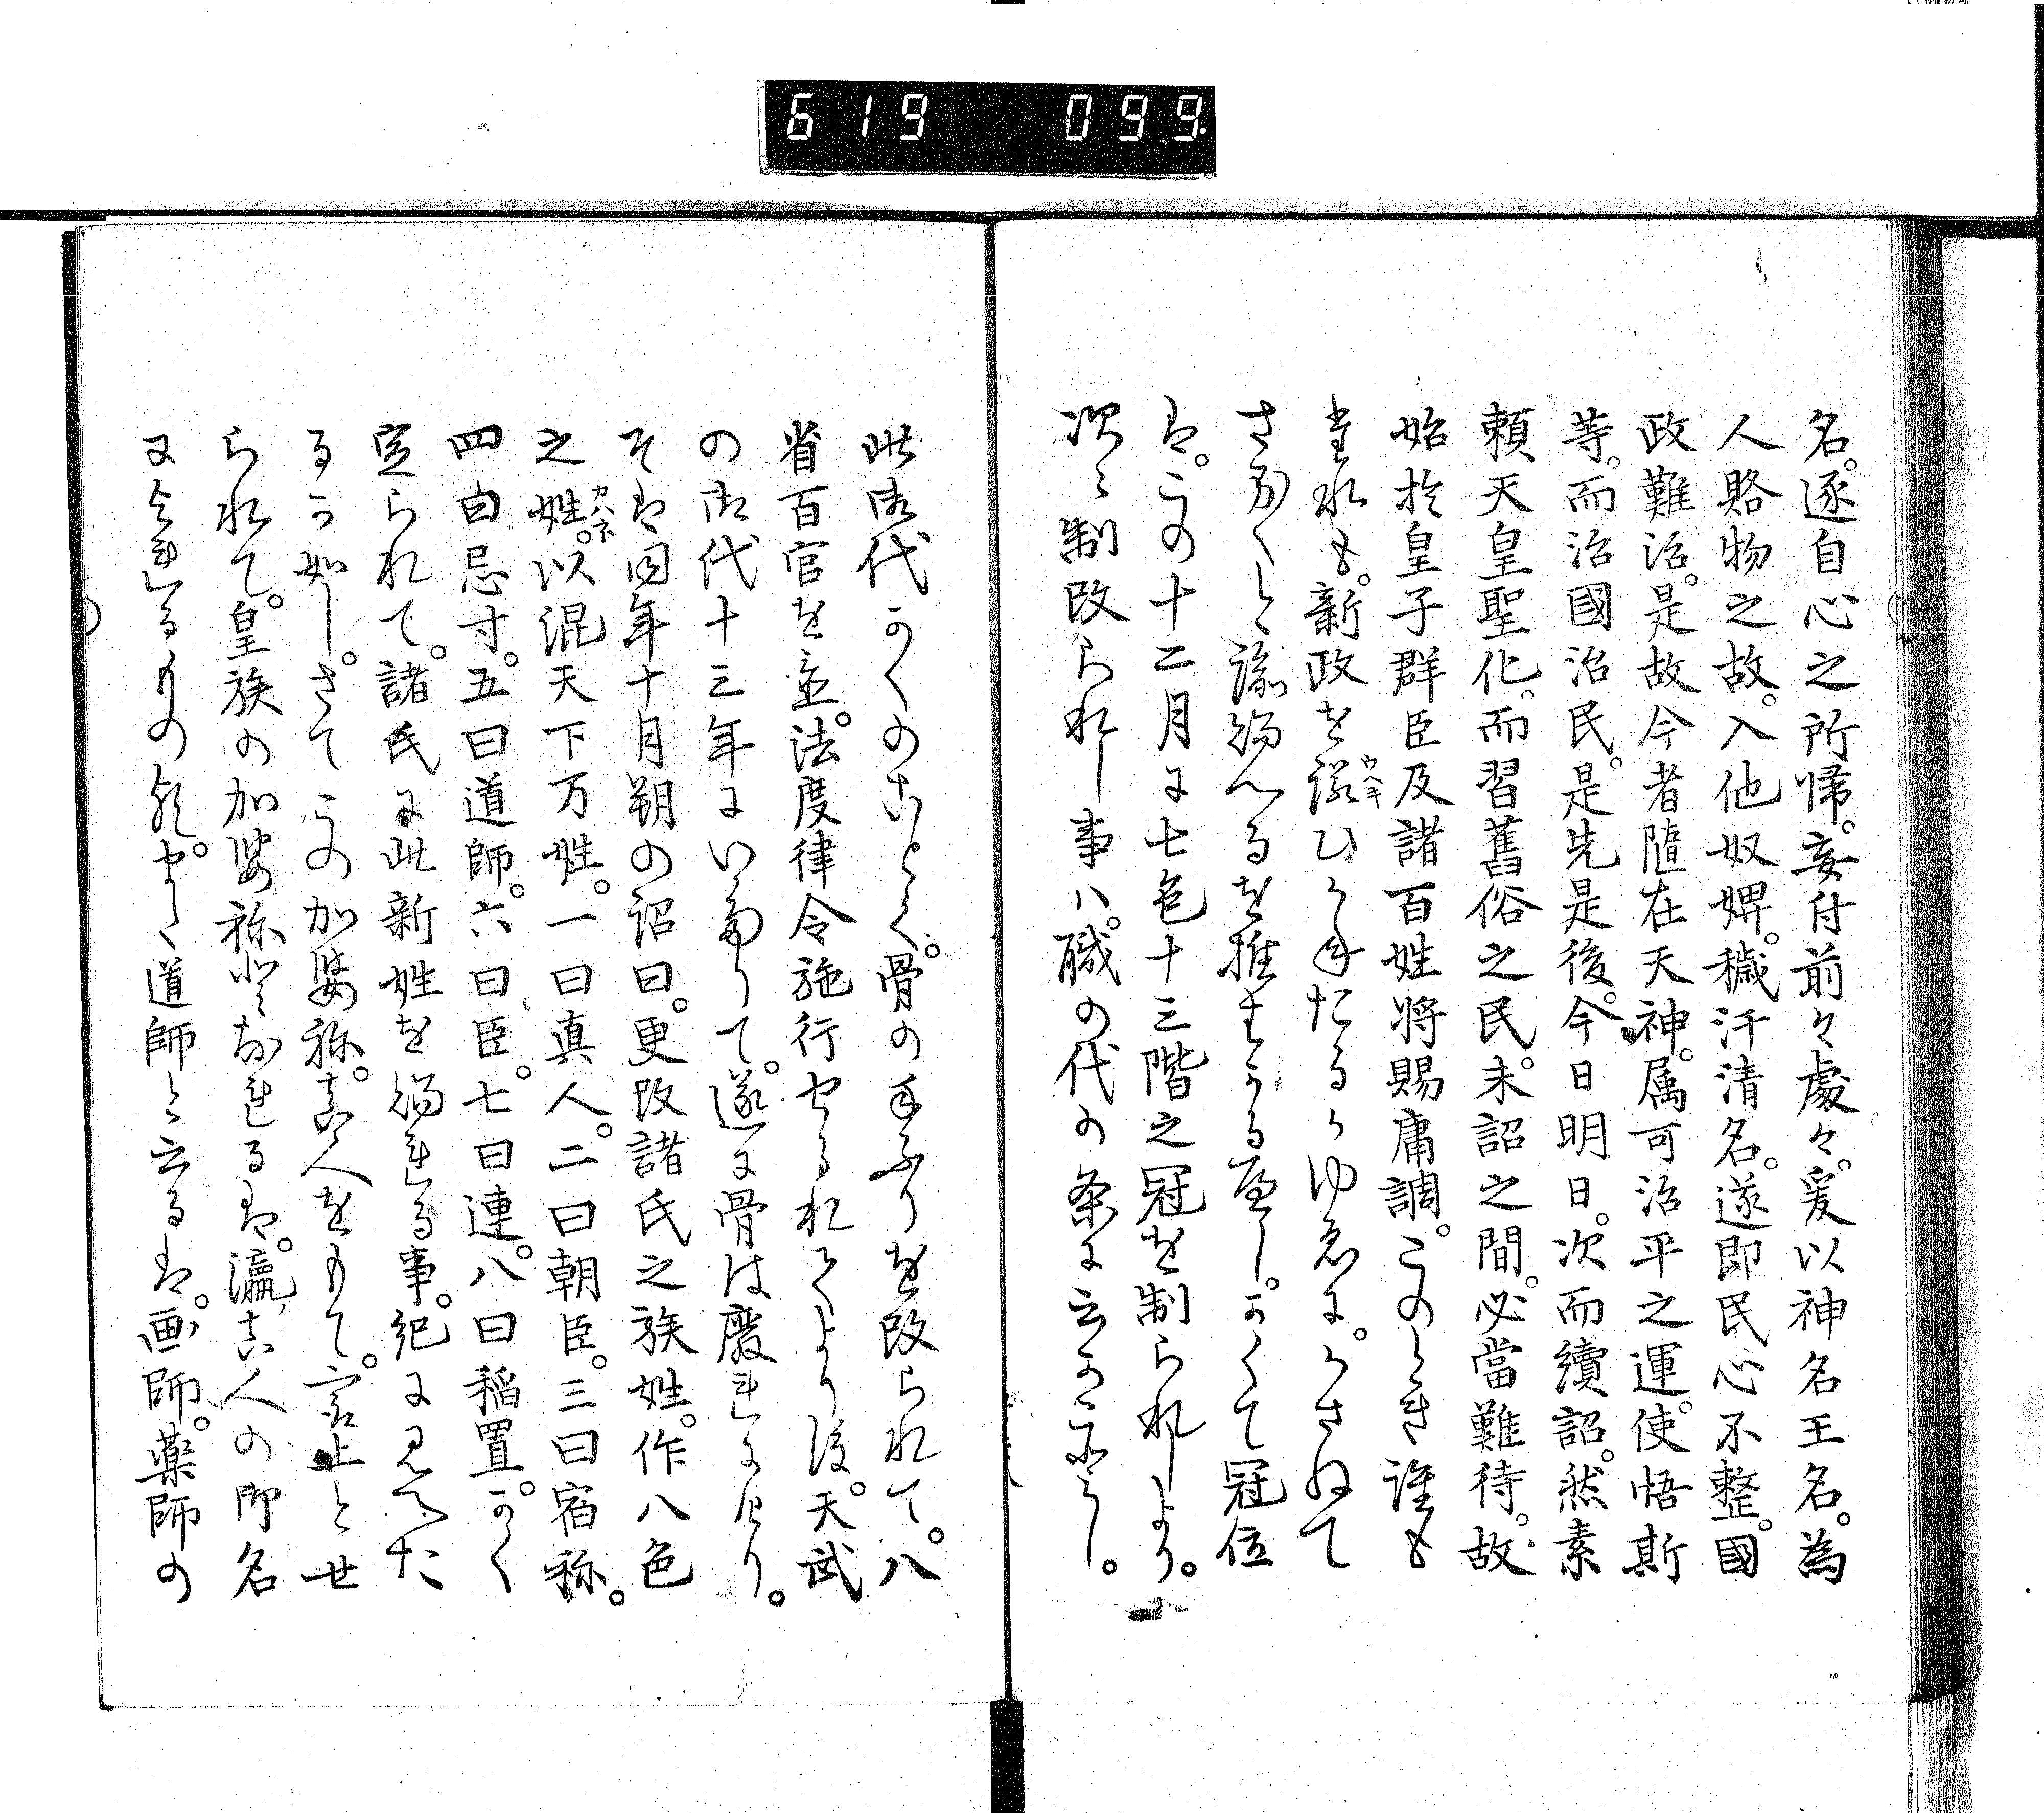 619 099
名。逐自心之所帰。妄付前々處々。爰以神名王名。為
人賂物之故。入他奴婢。穢汙清名。遂即民心不整。國
政難治。是故今者隨在天神。属可治平之運。使悟斯
等。而治國治民。是先是後。今日明日。次而續詔。然素
頼天皇聖化。而習舊俗之民。未詔之間。必當難待。故
始於皇子群臣及諸百姓将賜庸調。このとき誰も
誰も。新政を議ひかねたるかゆゑに。かさねて
さとく諭給へるを推すかる可し。かくて冠位
は。この十二月に七色十三階之冠を制られしより。
次々制改られし事ハ。職の代の条に云か如し。
此御代かくのことく。骨の手ふりを改られて。八
省百官を並。法度律令施行せられてより後。天武
の御代十三年にいたりて。遂に骨は廢れにけり。
そは同年十月朔の詔曰。更改諸氏之族姓。作八色
之姓。カバネ以混天下万姓。一曰真人。二曰朝臣。三曰宿祢。
四曰忌寸。五曰道師。六曰臣。七曰連。八曰稲置。かく
定られて。諸氏に此新姓を給れる事。紀に見えた
るか如し。さてこの加婆祢。真人をもて。第一と世
られて。皇族の加婆祢となれるは。瀛真人の御名
に今れるもの。道師と云るは。画師。薬師の